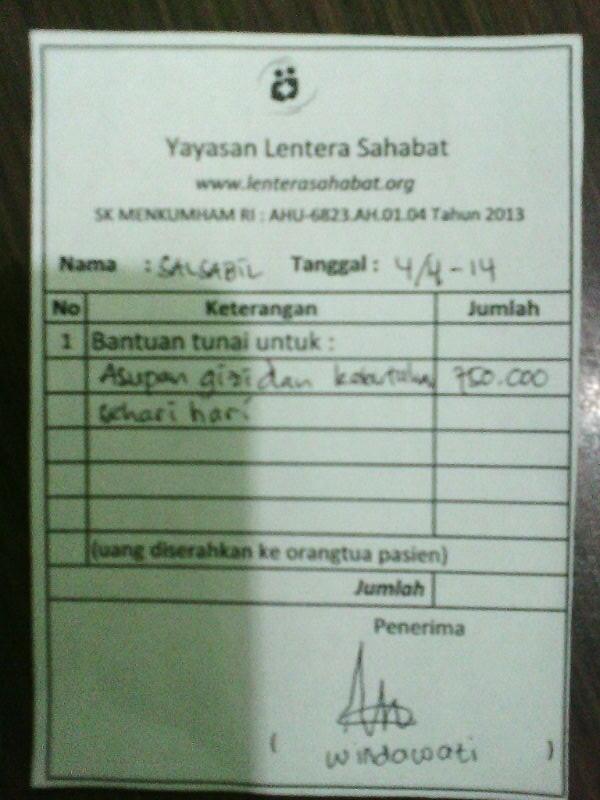 Yayasan Lentera Sahabat
www.lenterasahabat.org
SK MENKUMHAM RI : AHU-6823.AH.01.04 Tahun 2013
Nama : SALSABIL Tanggal : 4/4-14
No Keterangan Jumlah
1 Bantuan tunai untuk :
Asupan gizi dan kebutuhan 750.000
sehari hari
(uang diserahkan ke orangtua pasien)
Jumlah
Penerima
( windawati )